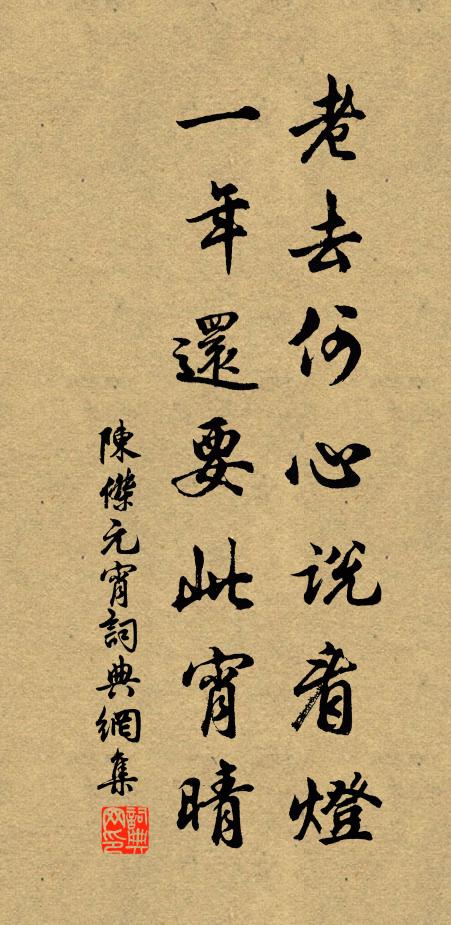 老去何心説看燈
一年還要此宵晴
陳傑元宵詞典網集
詞典網印